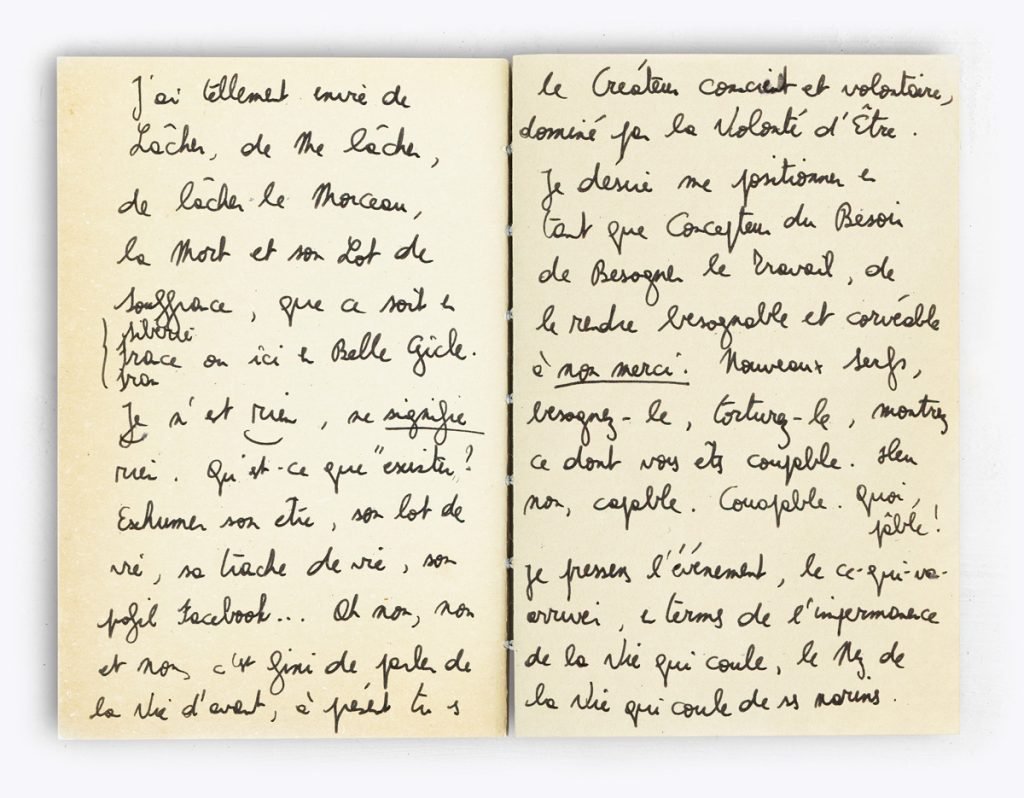 J'ai tellement envie de
Lâcher, de Me lâcher,
de lâcher le Morceau,
la Mort et son Lot de
souffrance, que ce soit en
sibérie
france ou ici en Belle Gicle.
Iran
Je n'est rien, ne signifie
rien. Qu'est-ce que "exister"?
Exhumer son être, son lot de
vie, sa trache de vie, son
profil Facebook... Oh non, non
et non, c'est fini de parler de
la Vie d'avant, à présent tu es
le Créateur conscient et volontaire,
dominé par la Volonté d'Être.
Je désire me positionner en
tant que Concepteur du Besoin
de Besogner le Travail, de
le rendre besognable et corvéable
à non merci. Nouveaux serfs,
besognez-le, torturez-le, montrez
ce dont vous êtes coupable. Heu
non, capable. Couapable. Quoi,
pâble!
Je pressens l'événement, le ce-qui-va-
arriver, en termes de l'impermanence
de la Vie qui coule, le Nez de
la Vie qui coule de ses narines.